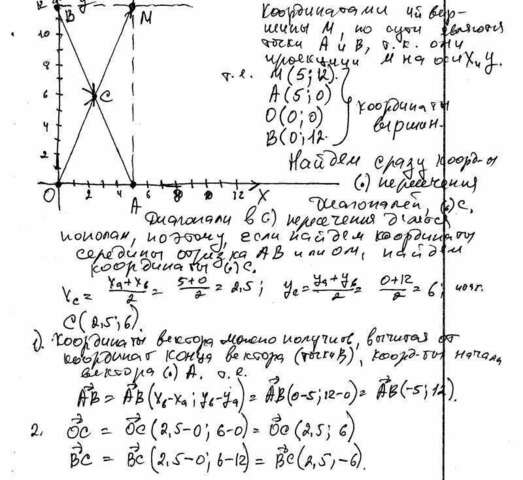 координатами ий вер-
шины М, по сути являются
точки А и В, т.к. они
проекции М на оси Х и У.
т.е. М(5;12)
А(5;0)
О(0;0)
В(0;12
координаты
вершин.
Найдем сразу коорд-ы
(.) пересечения
диагоналей, (.)С.
Диагонали в (.) пересечения делятся
пополам, поэтому, если найдём координаты
середины отрезка АВ или ОМ, найдём
координаты (.)С.
Xc = (xA+xB)/2 = (5+0)/2 = 2,5; yc = (yA+yB)/2 = (0+12)/2 = 6;
С(2,5;6).
1). Координаты вектора можно получить, вычитая от
координат конца вектора (точки В), коорд-ты начала
вектора (.) А. т.е.
A⃗B = A⃗B(xв-xа; yв-yа) = A⃗B(0-5; 12-0) = A⃗B(-5; 12).
2. O⃗C = O⃗C(2,5-0; 6-0) = O⃗C(2,5; 6)
B⃗C = B⃗C(2,5-0; 6-12) = B⃗C(2,5; -6).
12
В
У
М
10
8
6
С
4
2
О
2
А
8
10
12
Х